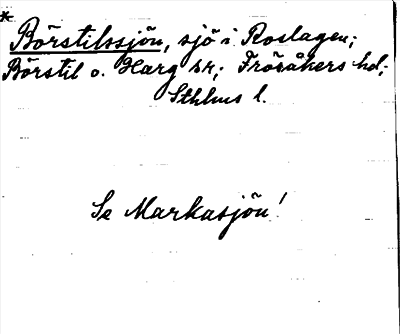 *
Börstilssjön, sjö i Roslagen;
Börstil o. Harg sk; Frösåkers hd;
Sthlms l.
Se Markasjön!